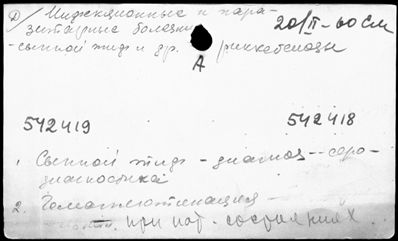 Инфекционные и пара-
зитарные болезни 20/II-60 см
-сыпной тиф и др. риккетсиозы
А
542419 542418
1. Сыпной тиф - диагноз - серо-
диагностика
2. Гемагглютинация -
при пат. состояниях